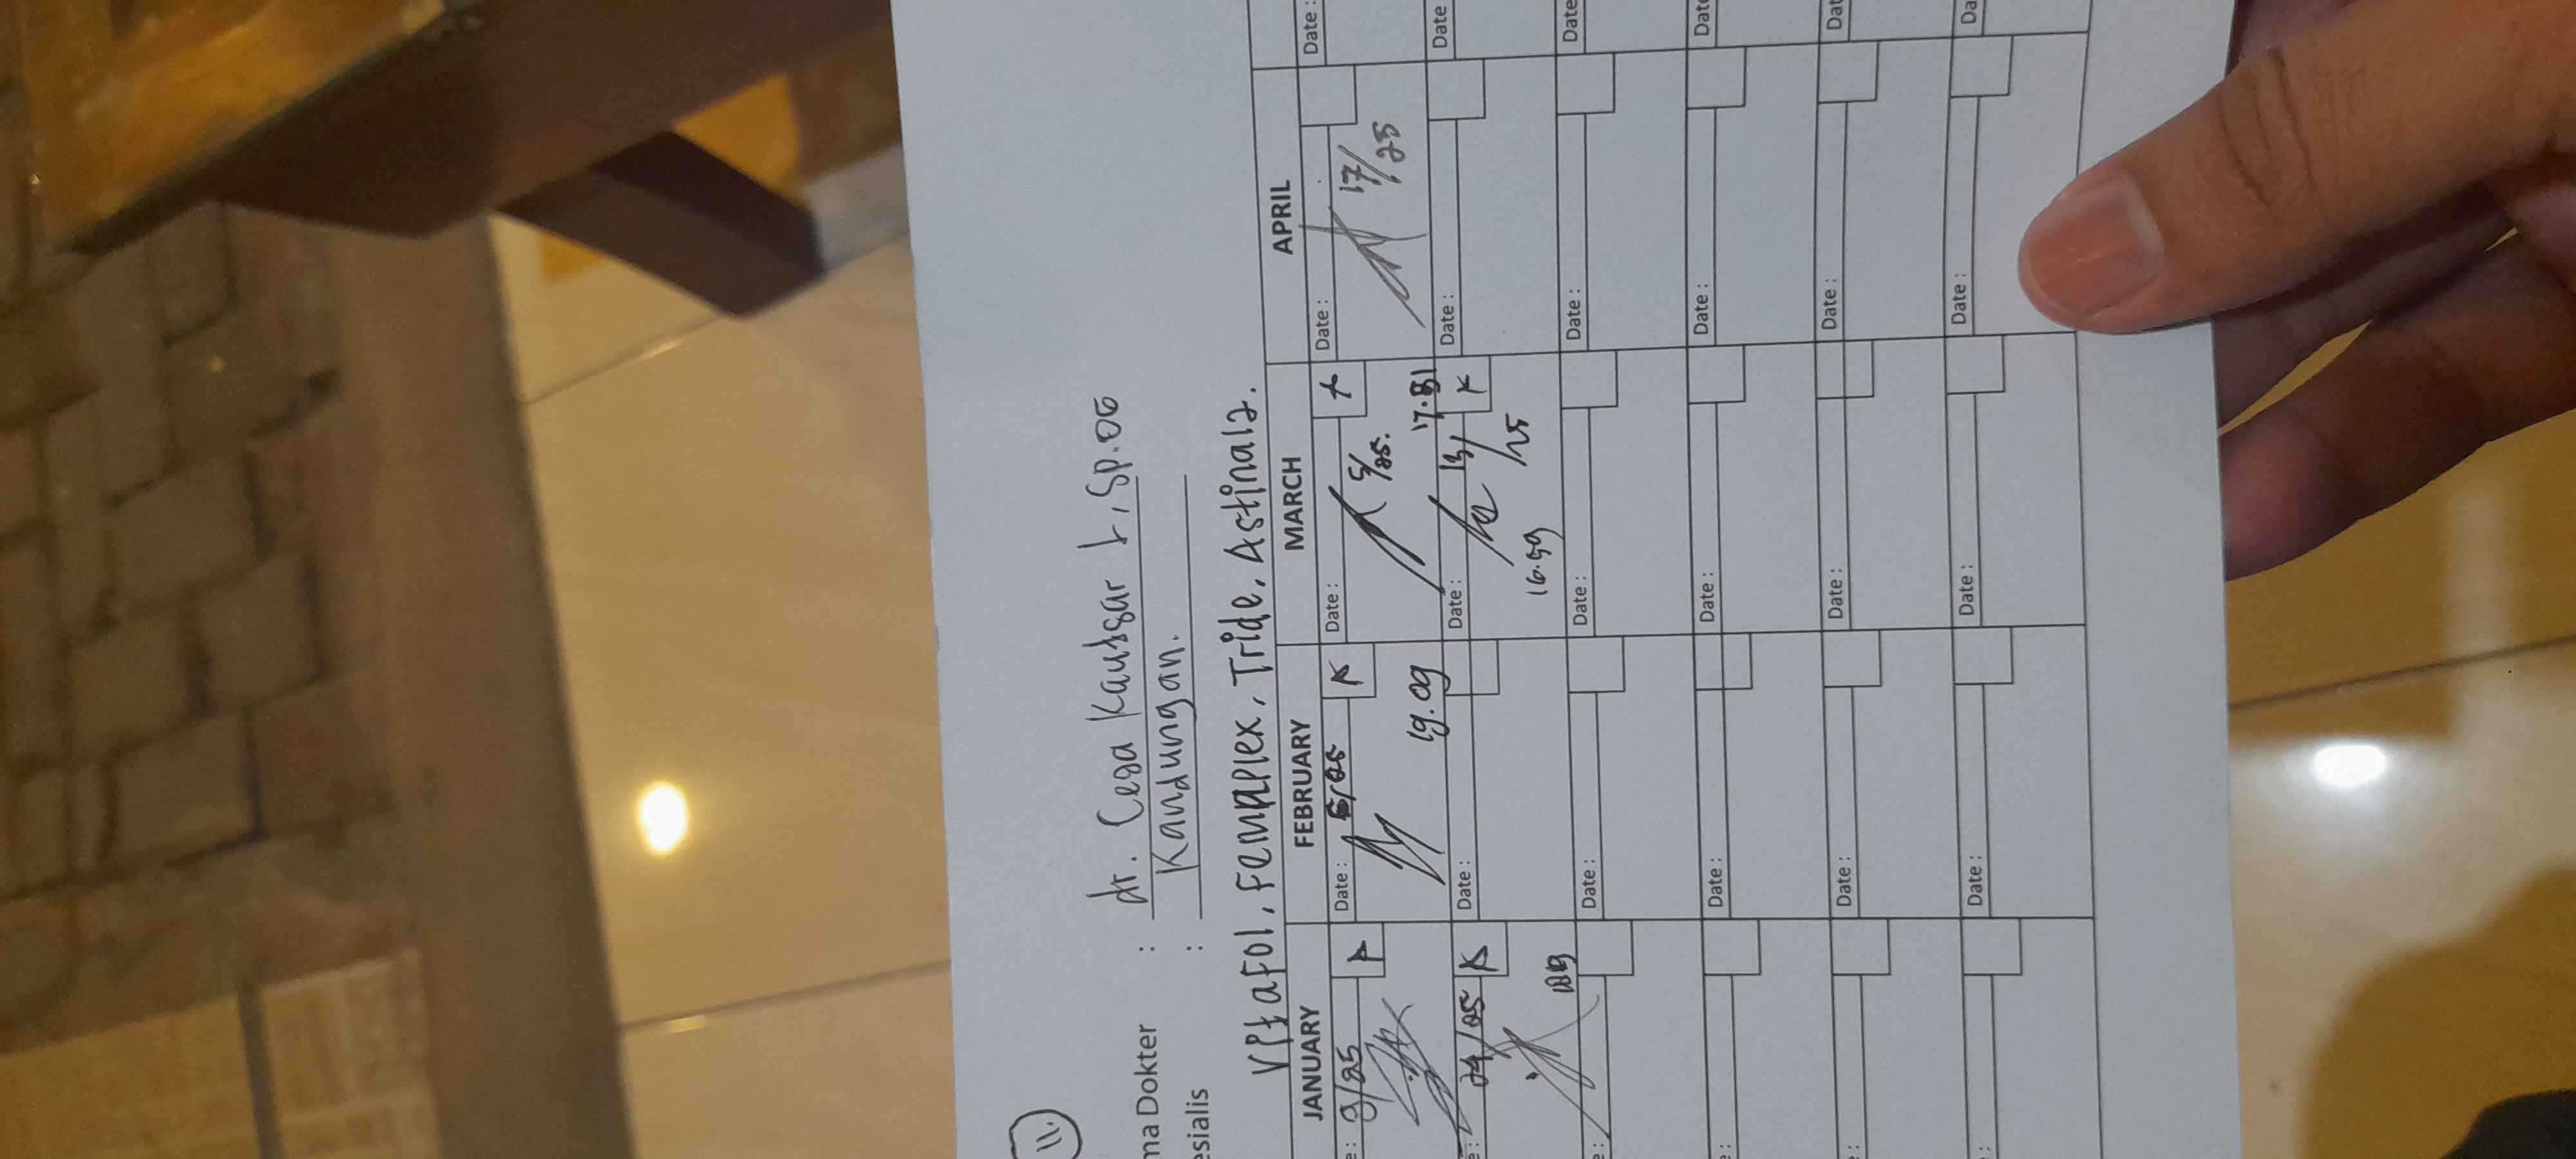 11.
ma Dokter : dr. Cesa Kautsar I, Sp.OG
esialis : Kandungan.
Vitafol, Femaplex, Tride, Astinalz.
JANUARY FEBRUARY MARCH APRIL
e : 9/25 Date : 5/25 Date : Date : Date :
5/25. 17/25
19.09 17.31
e : 24/25 Date : Date : 13/25 Date : Date
16.59
e : Date : Date : Date : Date
: Date : Date : Date : Date
e : Date : Date : Date : Dat
e : Date : Date : Date : Da